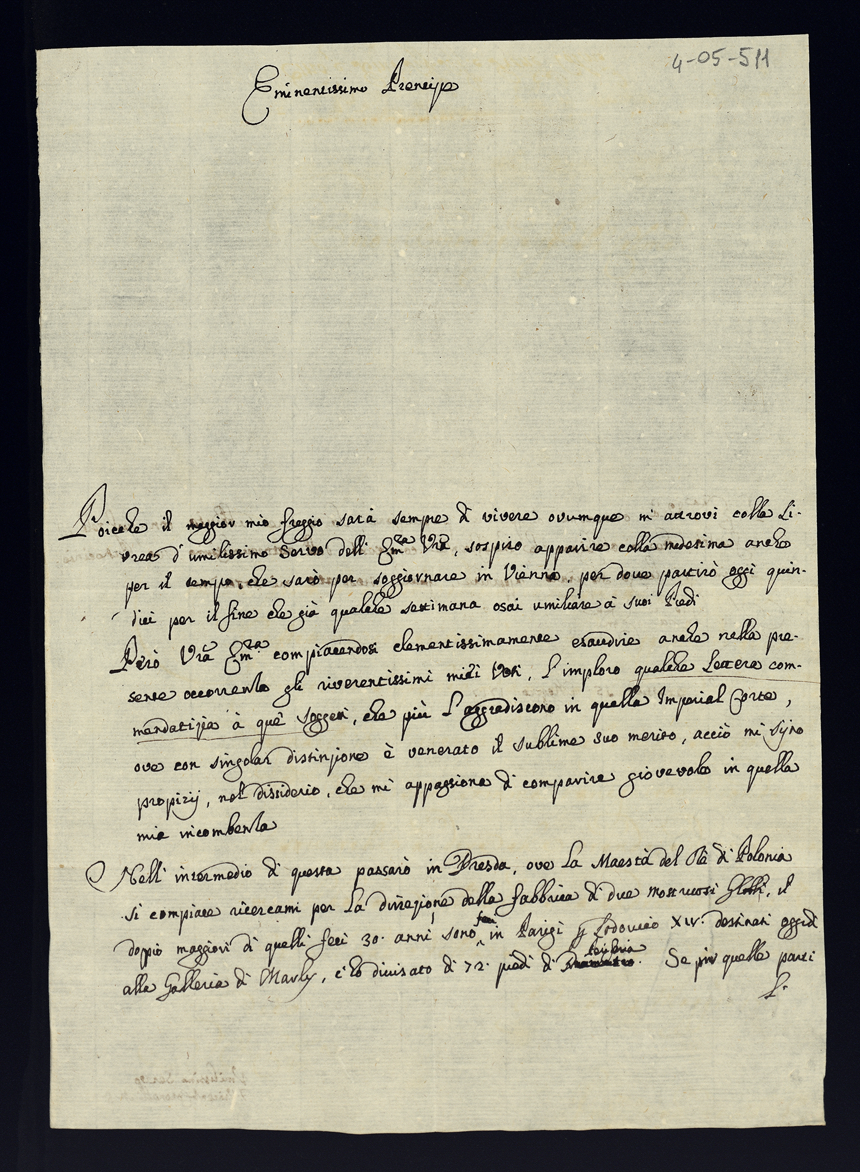 4-05-511
Eminentissimo Prencipe
Poiche il maggior mio freggio sarà sempre di vivere ovumque m'attrovi colla Li-
vrea d'umilissimo Servo dell'Em.za Vrã, sospiro apparire colla medesima anche
per il tempo, che sarò per soggiornare in Vienna, per dove partirò oggi quin-
dici per il fine che già qualche settimana osai umiliare à suoi Piedi
Però Vrã Em.za compiacendosi clementissimamente esaudire anche nella pre-
sente occorrenza gli riverentissimi miei Voti, L'imploro qualche Lettera com-
mendatizia à què Soggetti, che più L'aggradiscono in quella Imperial Corte,
ove con singolar distinzione è venerato il sublime suo merito, acciò mi sijno
propizij, nel dissiderio, che mi appassiona di comparire giovevole in quella
mia incombenza
Nell'intermedio di questa passarò in Dresda, ove La Maestà del Rè di Polonia
si compiace ricercami per La direzione della fabbrica di due mostruosi Globbi, il
doppio maggiori di quelli feci 30. anni sono in Parigi p Lodovico XIV. destinati oggidì
alla Galleria di Marly, e lo divisato di 72. piedi di Periferia. Se in quelle parti